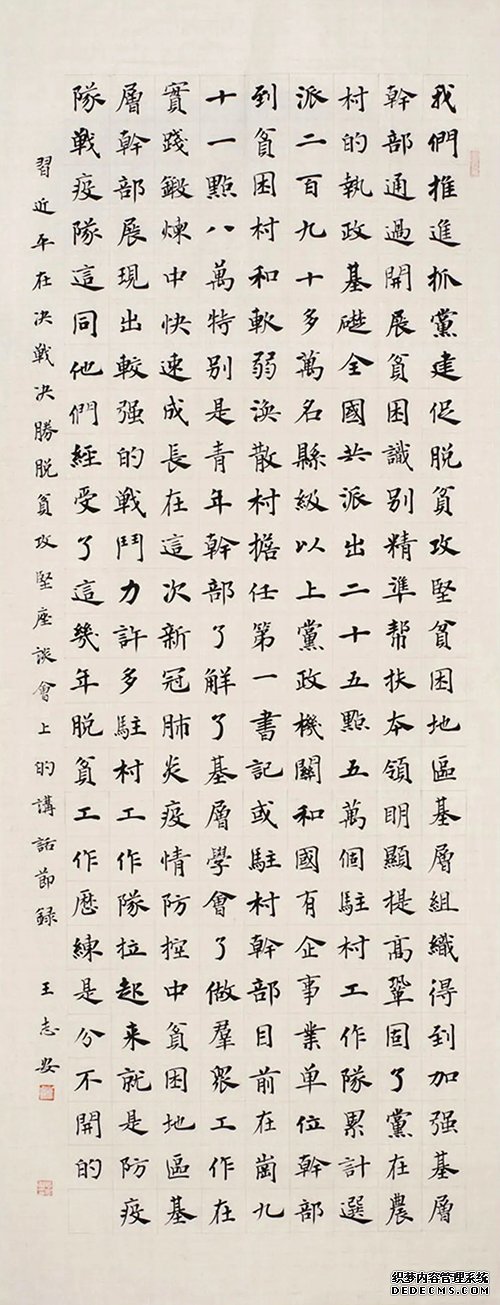 我們推進抓黨建促脱貧攻堅貧困地區基層組織得到加强基層
幹部通過開展貧困識別精準幫扶本領明顯提高鞏固了黨在農
村的執政基礎全國共派出二十五點五萬個駐村工作隊累計選
派二百九十多萬名縣級以上黨政機關和國有企事業單位幹部
到貧困村和軟弱渙散村擔任第一書記或駐村幹部目前在崗九
十一點八萬特別是青年幹部了解了基層學會了做羣眾工作在
實踐鍛煉中快速成長在這次新冠肺炎疫情防控中貧困地區基
層幹部展現出較强的戦鬥力許多駐村工作隊拉起來就是防疫
隊戦疫隊這同他們經受了這幾年脱貧工作歷練是分不開的
習近平在决戦决勝脱貧攻堅座談會上的講話節録 王志安
织梦内容管理系统
DEDECMS.COM